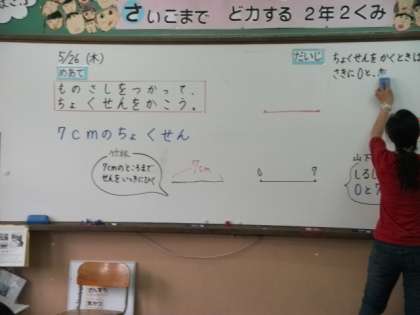 さいごまで ど力する 2年2くみ
5/26 (木)
めあて
ものさしをつかって、
ちょくせんをかこう。
7cmのちょくせん
7cmのところまで
せんをいっきにひく
7cm
0 7
だいじ
ちょくせんをかくときは
さきに0と、
山下
しるし
0と7